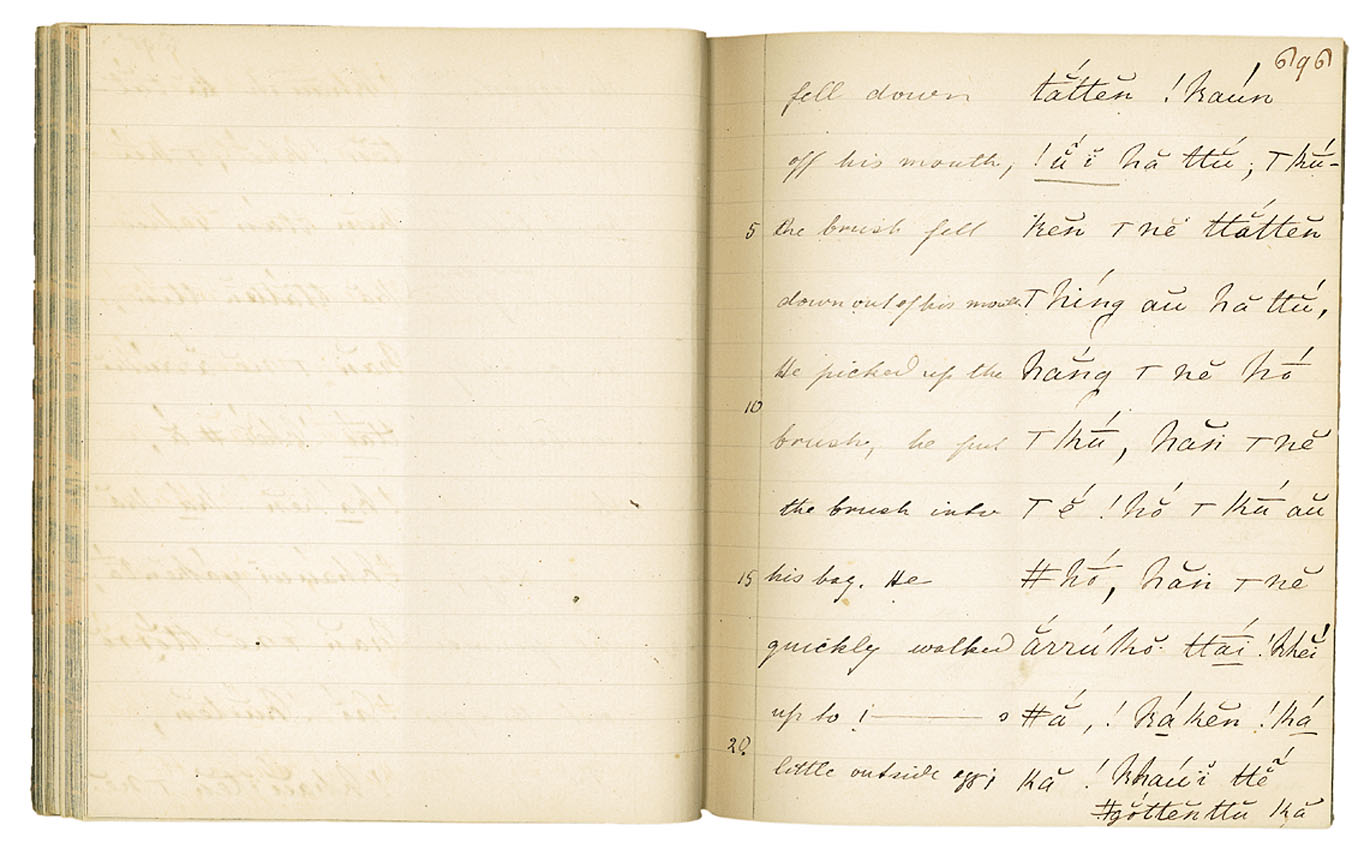 696
fell down tátten̆ !kaún
off his mouth, !ŭ́ĭ hă ttú; T kŭ-
5 the brush fell ken̆ T nĕ ttắtten̆
down out of his mouth T híng aŭ hă ttú,
He picked up the háng T nĕ hó
10
brush, he put T kū́, hăn T nĕ
the brush into T é !hó T kū́ aŭ
15 his bag. He ǂhó, hăn T nĕ
quickly walked ărrúkŏ ttái !khĕ́ĭ
up to ! ǂă, !kákĕn !ká
20
little outside egg; kă !khaúĭ ttĕ̃
ǂgóttĕnttŭ kă